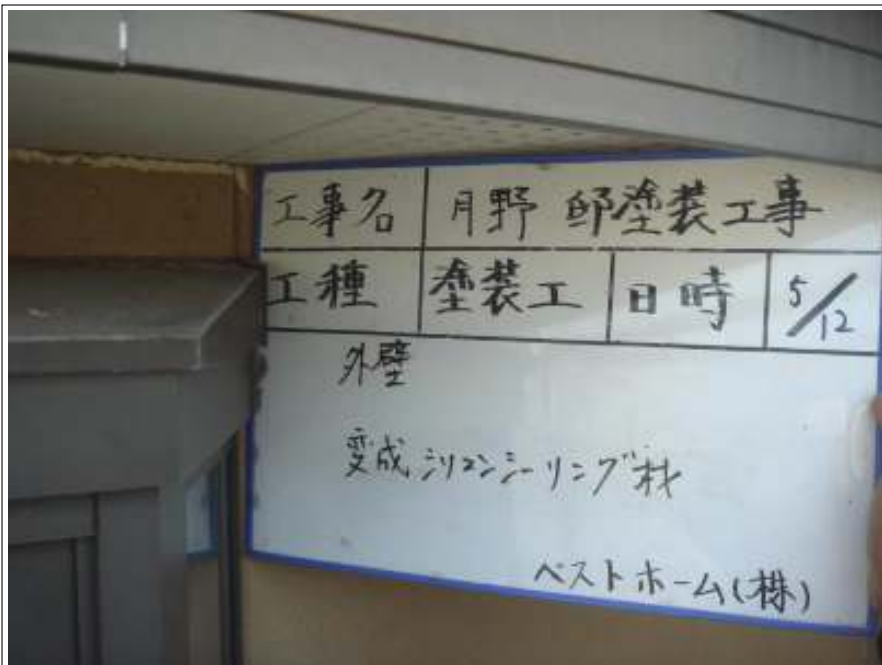 工事名 月野 邸塗装工事
工種 塗装工 日時 5/12
外壁
変成シリコンシーリング材
ベストホーム(株)